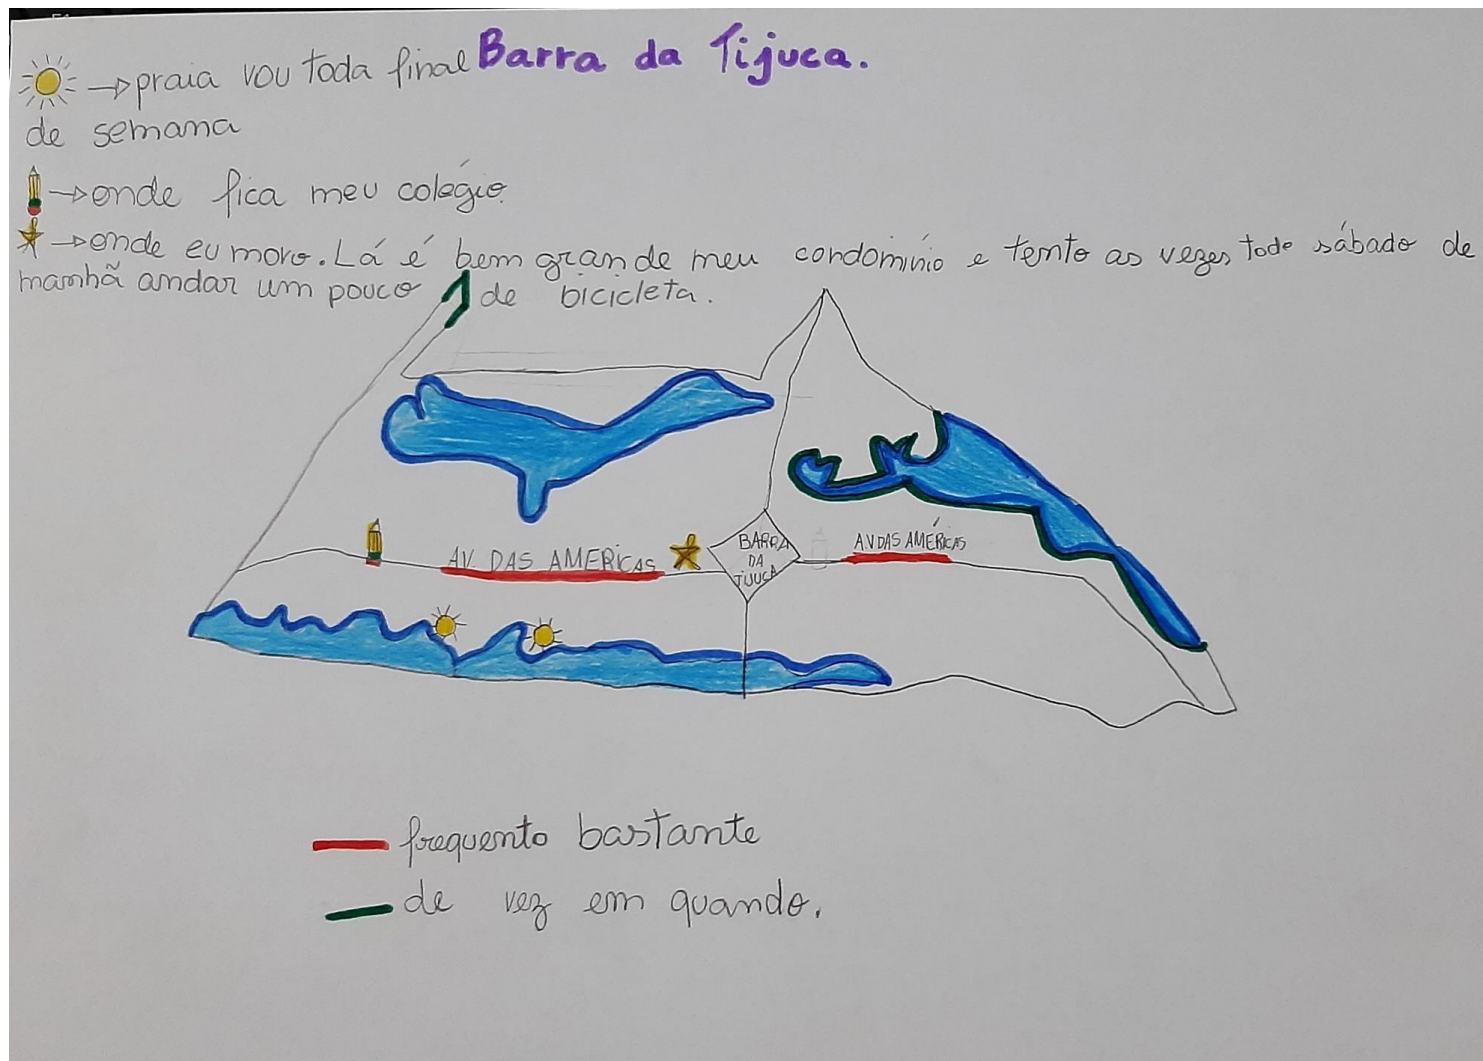 Barra da Tijuca.
→praia vou toda final
de semana
→onde fica meu colégio.
→onde eu moro. Lá é bem grande meu condomínio e tento as vezes todo sábado de
manhã andar um pouco de bicicleta.
AV. DAS AMERICAS
BARRA
DA
TIJUCA
AV DAS AMÉRICAS
frequento bastante
de vez em quando.